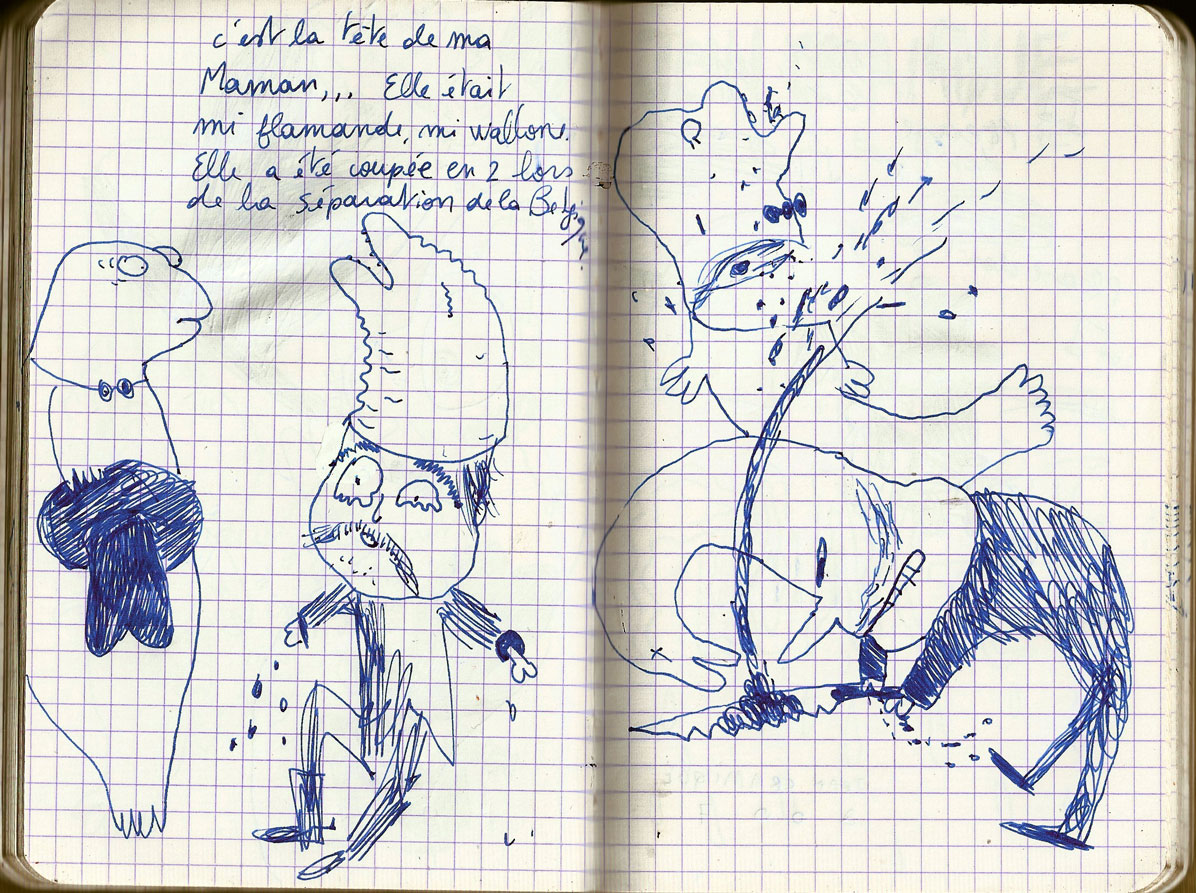 c'est la tête de ma
Maman,.. Elle était
mi flamande, mi wallone.
Elle a été coupée en 2 lors
de la séparation de la Belgique.